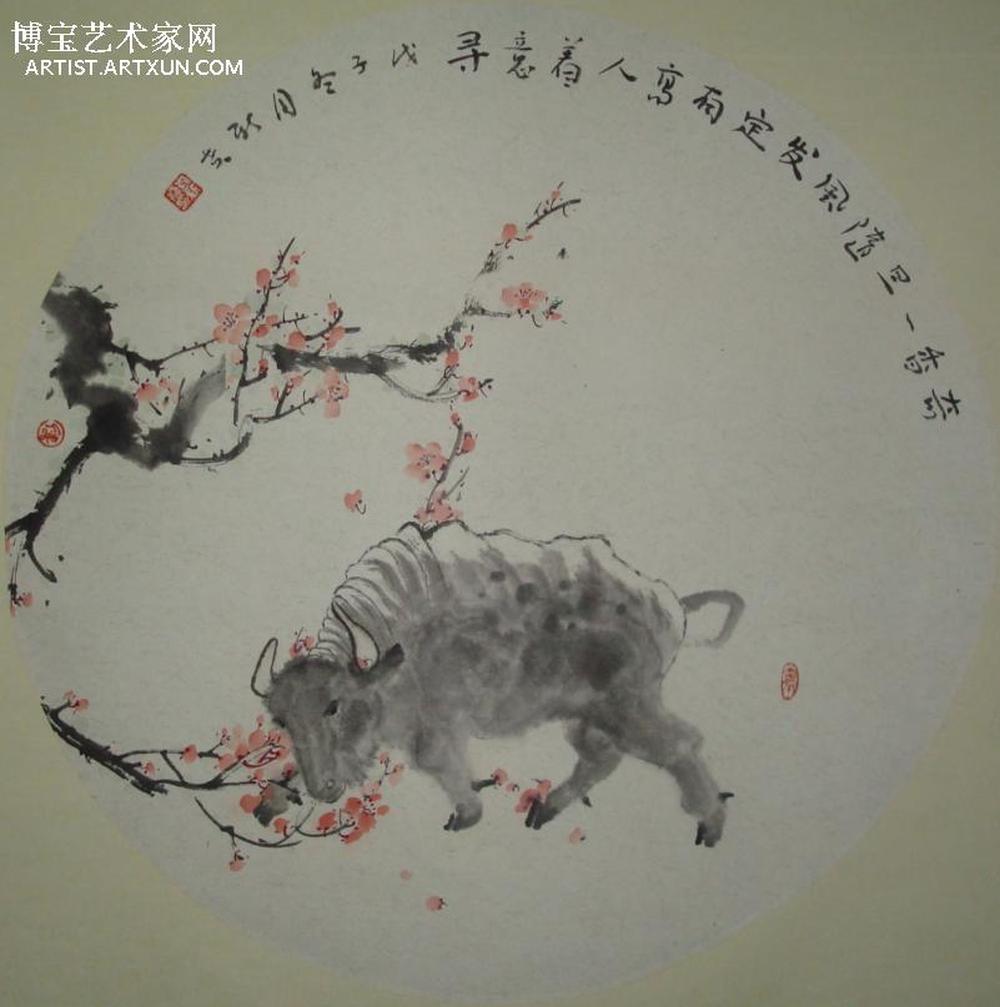 博宝艺术家网
ARTIST.ARTXUN.COM
奇香一旦随風发定有高人着意寻 戊子冬月